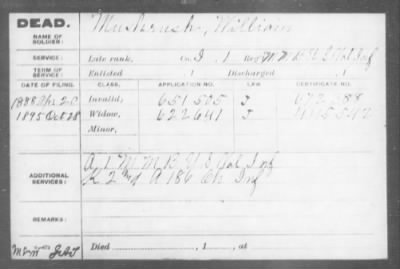 DEAD.
NAME OF SOLDIER: Mushrush, William
SERVICE: Late rank, Co. I, 1 Reg't M M B U S Vol Inf
TERM OF SERVICE: Enlisted , 1 Discharged , 1
DATE OF FILING. CLASS. APPLICATION NO. LAW CERTIFICATE NO.
1888 Apr 20 Invalid, 651505 J
1895 Oct 28 Widow, 622641 J
Minor,
A 1 M M B U S Vol Inf
ADDITIONAL SERVICES: K 2nd A 186 Oh Inf
REMARKS:
Died , 1 , at